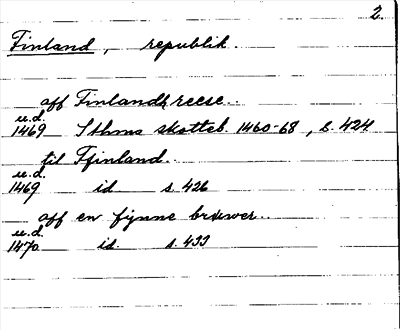 2.
Finland, republik.
aff Finlandz reese..
u.d.
1469 Sthms skotteb. 1460-68, s. 424
til Ffinland.
u.d.
1469 id s. 426
aff en fynne brwer..
u.d.
1470 id. s. 433